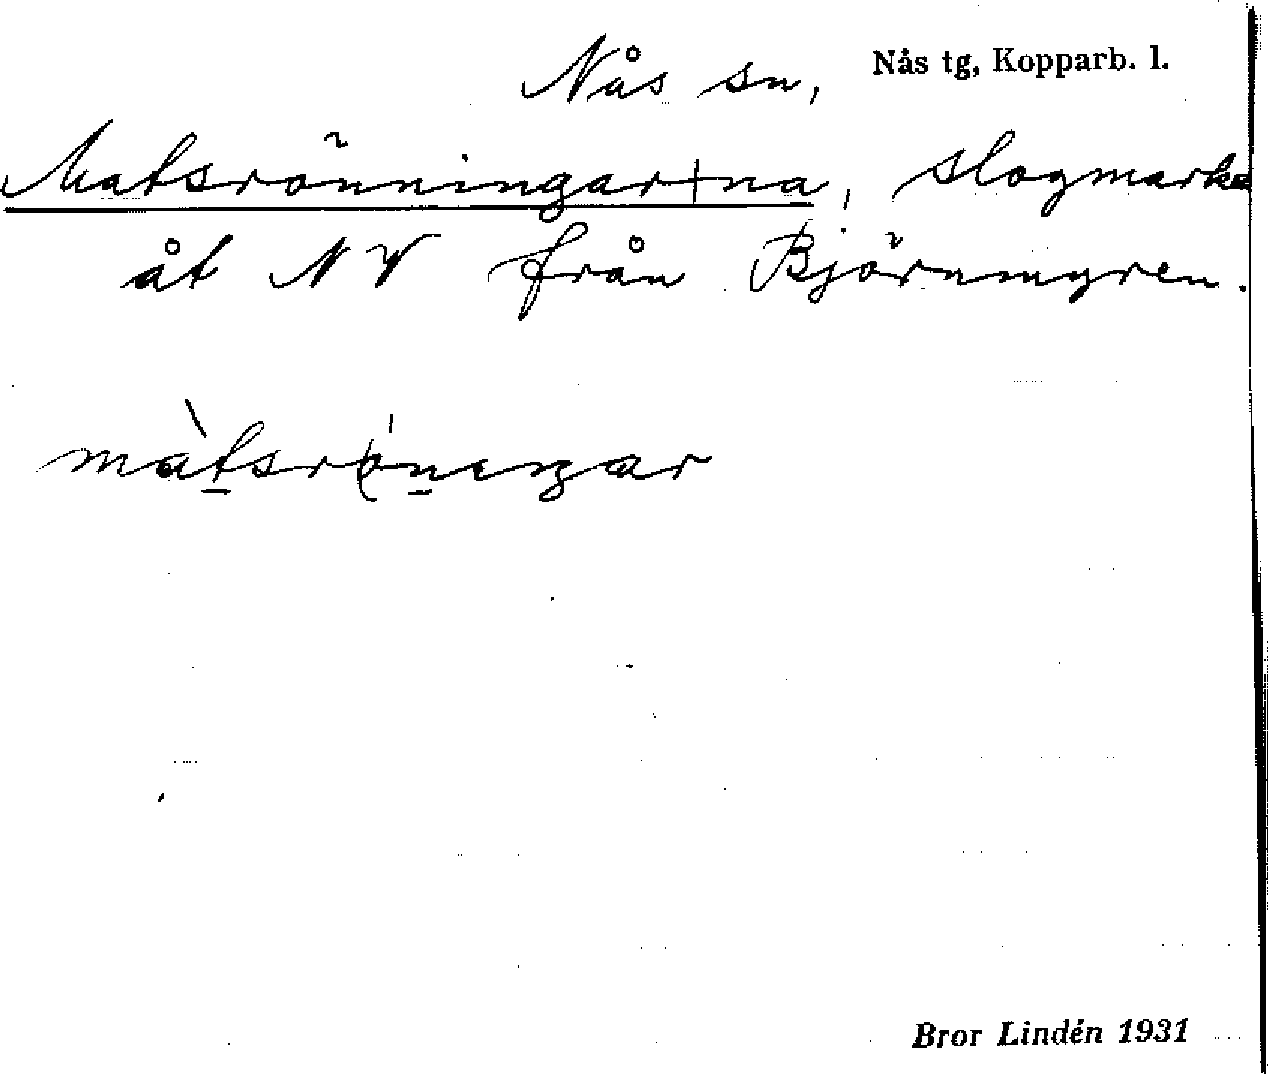 Nås sn, Nås tg, Kopparb. l.
Matsrönningar+na, slogmark
åt NV från Björnmyren.
màtsrǫ́ningar
Bror Lindén 1931